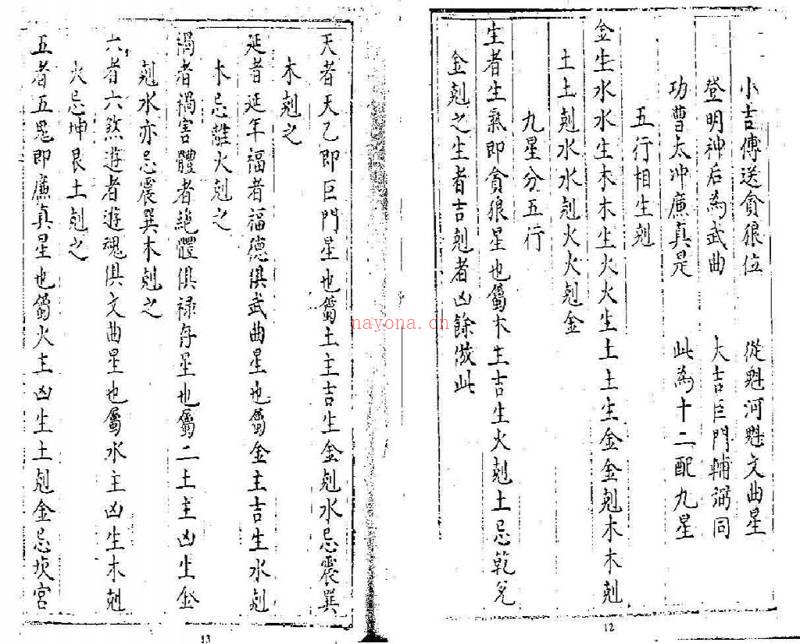 小吉傳送貪狼位　從魁河魁文曲星
登明神后為武曲　大吉巨門輔弼同
功曹太冲廉真是　此為十二配九星
五行相生剋
金生水水生木木生火火生土土生金金剋木木剋
土土剋水水剋火火剋金
九星分五行
生者生氣即貪狼星也屬木主吉生火剋土忌乾兌
金剋之生者吉剋者凶餘倣此
12
天者天乙即巨門星也屬土主吉生金剋水忌震巽
木剋之
延者延年福者福德俱武曲星也屬金主吉生水剋
木忌離火剋之
禍者禍害體者絕體俱禄存星也屬二土主凶生金
剋水亦忌震巽木剋之
六者六煞遊者遊魂俱文曲星也屬水主凶生木剋
火忌坤艮土剋之
五者五鬼即廉真星也屬火主凶生土剋金忌坎宮
13
nayona.cn